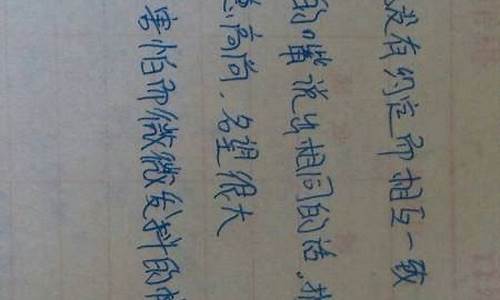 没有约定而相互一致
的嘴说出相同的话.
高尚.名望很大
害怕而微微发抖的